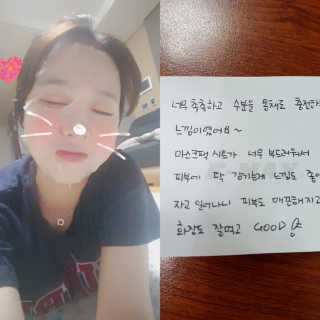 너무 촉촉하고 수분을 통째로 충전하
느낌이였어요~
마스크팩 시트가 너무 부드러워서
피부에 딱 감기는게 느낌도 좋아
자고 일어나니 피부도 매끈해지고
화장도 잘먹고 GOOD